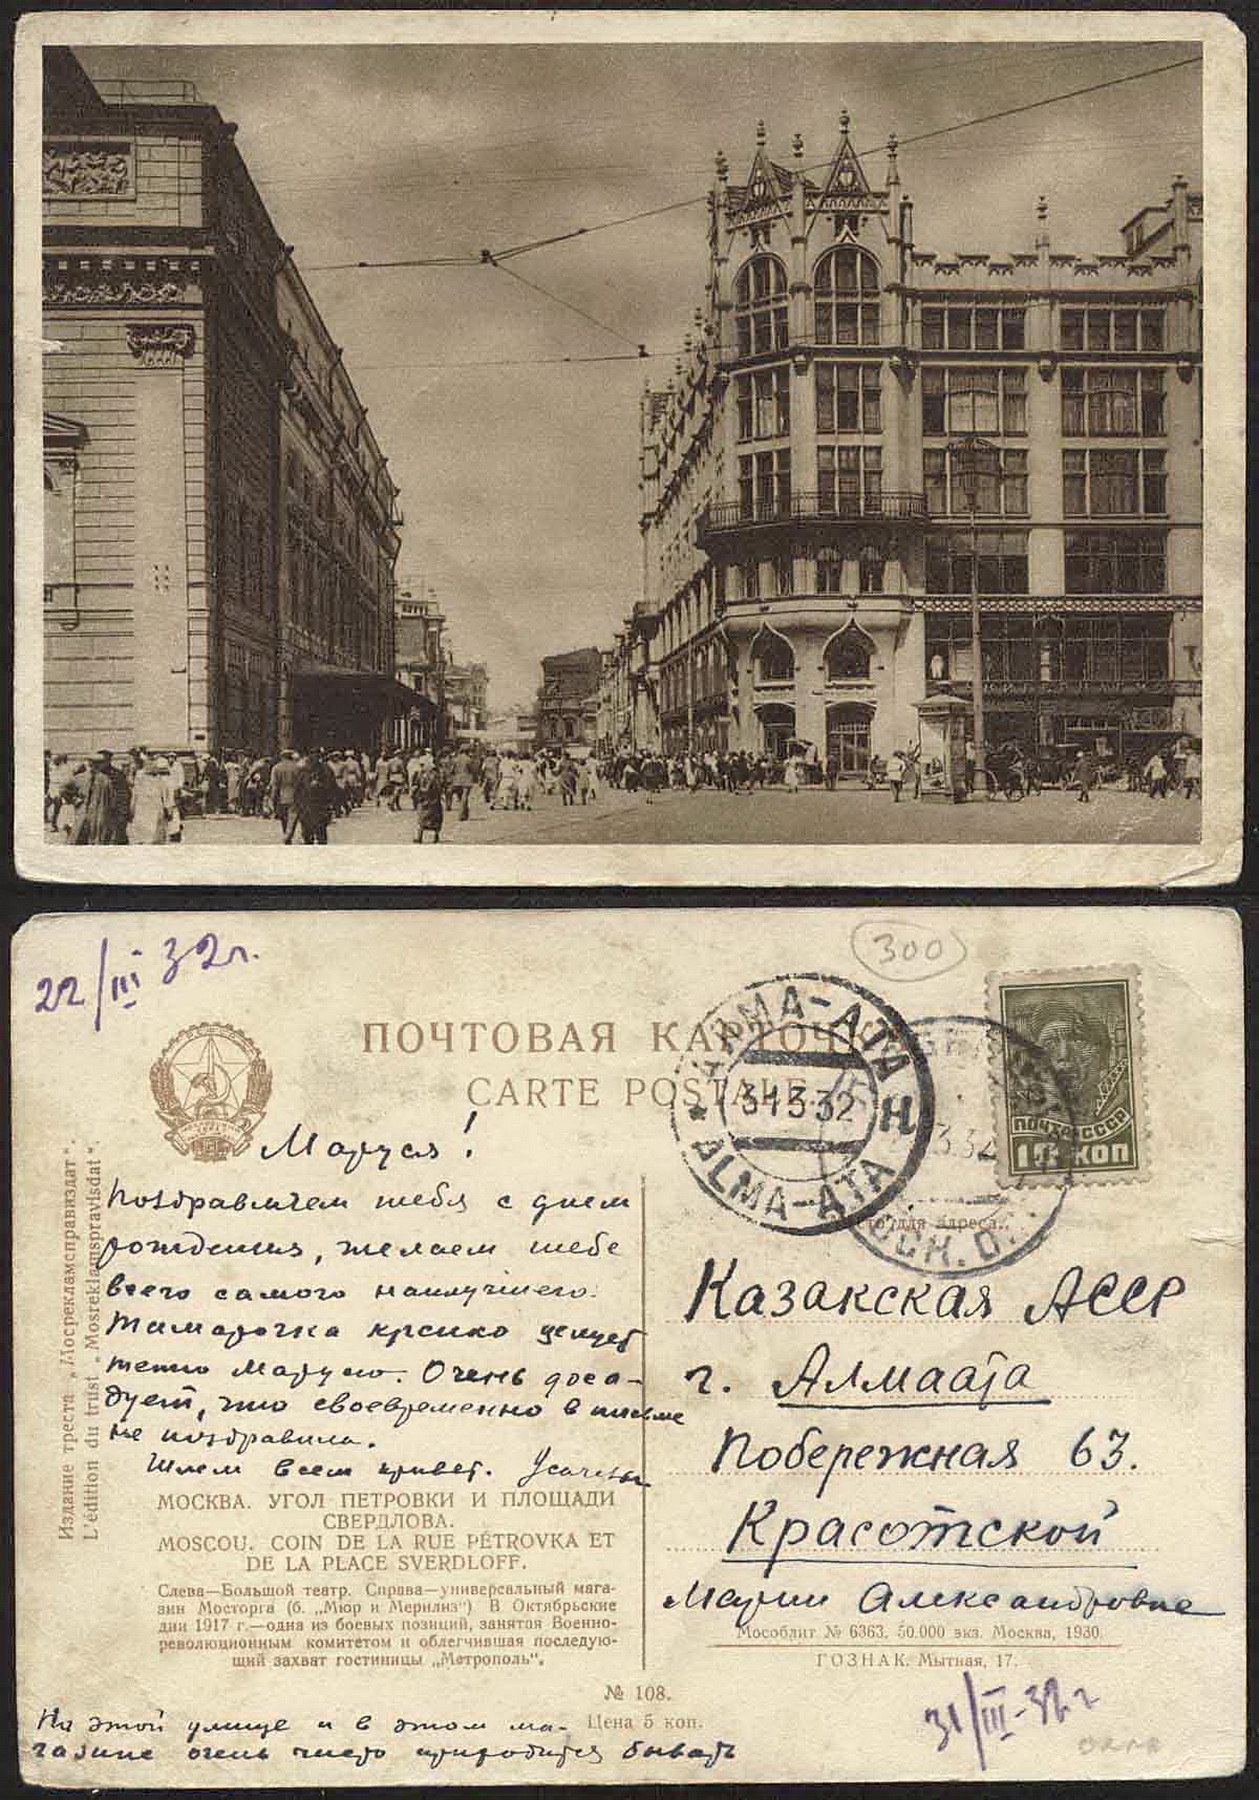 22/III 32г.
300
ПОЧТОВАЯ КАРТОЧКА
CARTE POSTALE
АЛМА-АТА
31 3 32
Н
ALMA-ATA
3.32
ПОЧТА СССР
КОП
Маруся!
Поздравляем тебя с днем
рождения, желаем тебе
всего самого наилучшего.
Тамарочка крепко целует
тетю Марусю. Очень доса-
дует, что своевременно в письме
не поздравила.
Шлем всем привет.
Издание треста „Мосрекламсправиздат".
L'édition du trust „Mosreklamspravisdat".
МОСКВА. УГОЛ ПЕТРОВКИ И ПЛОЩАДИ
СВЕРДЛОВА.
MOSCOU. COIN DE LA RUE PÉTROVKA ET
DE LA PLACE SVERDLOFF.
Слева—Большой театр. Справа—универсальный мага-
зин Мосторга (б. „Мюр и Мерилиз") В Октябрьские
дни 1917 г.—одна из боевых позиций, занятая Военно-
революционным комитетом и облегчившая последую-
щий захват гостиницы „Метрополь".
№ 108.
Цена 5 коп.
На этой улице и в этом ма-
газине очень часто приходится бывать
Место для адреса.
Казакская АССР
г. Алмаата
Побережная 63.
Красотской
Марии Александровне
Мособлит № 6363. 50.000 экз. Москва, 1930.
ГОЗНАК. Мытная, 17.
31/III-32 г